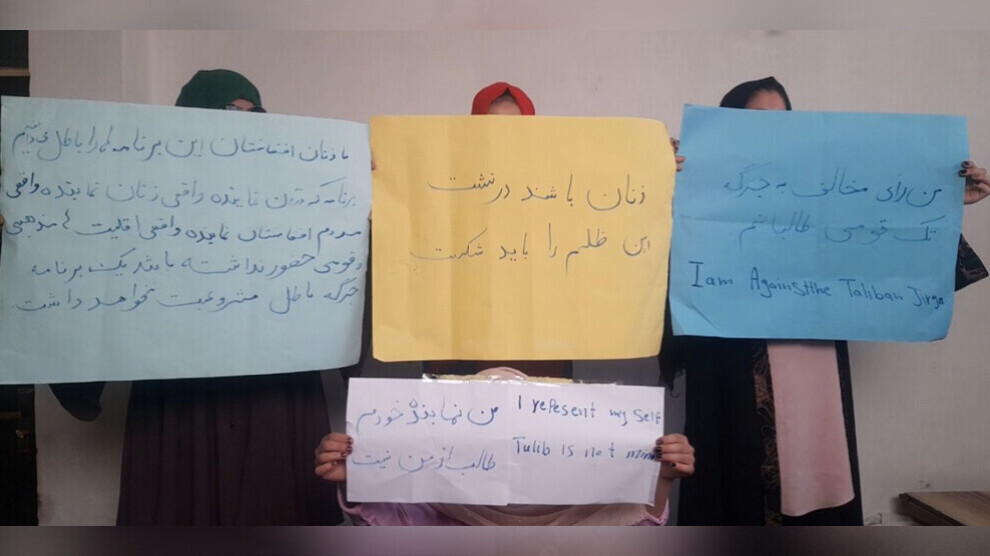 ما زنان افغانستان این برنامه را باطل میدانیم
برنامه که درون نماینده واقعی زنان نماینده واقعی
مردم افغانستان نماینده واقعی اقلیت های مذهبی
و قومی حضور نداشته باشد یک برنامه
جرگه باطل مشروعیت نخواهد داشت
زنان باشند در نشست
این ظلم را باید شکست
من رای مخالف به جرگه
تک قومی طالبانم
I am Against the Taliban Jirga
من نماینده خودم
طالب از من نیست
I repesent my self
Tulib is not mine